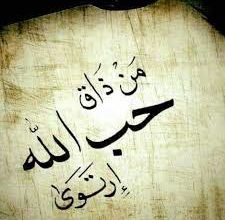 مَنْ ذَاق
حب الله
إرتوىٰ